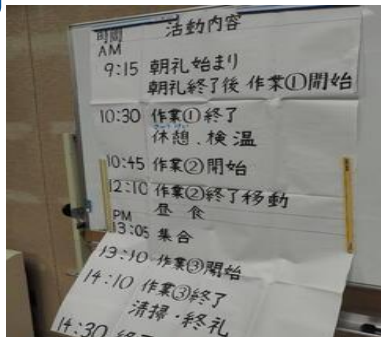 時間 活動内容
AM
9:15 朝礼始まり
朝礼終了後 作業①開始
10:30 作業①終了
きゅうけい
休憩、検温
10:45 作業②開始
12:10 作業②終了移動
昼食
PM
13:05 集合
13:10 作業③開始
14:10 作業③終了
清掃・終礼
14:30